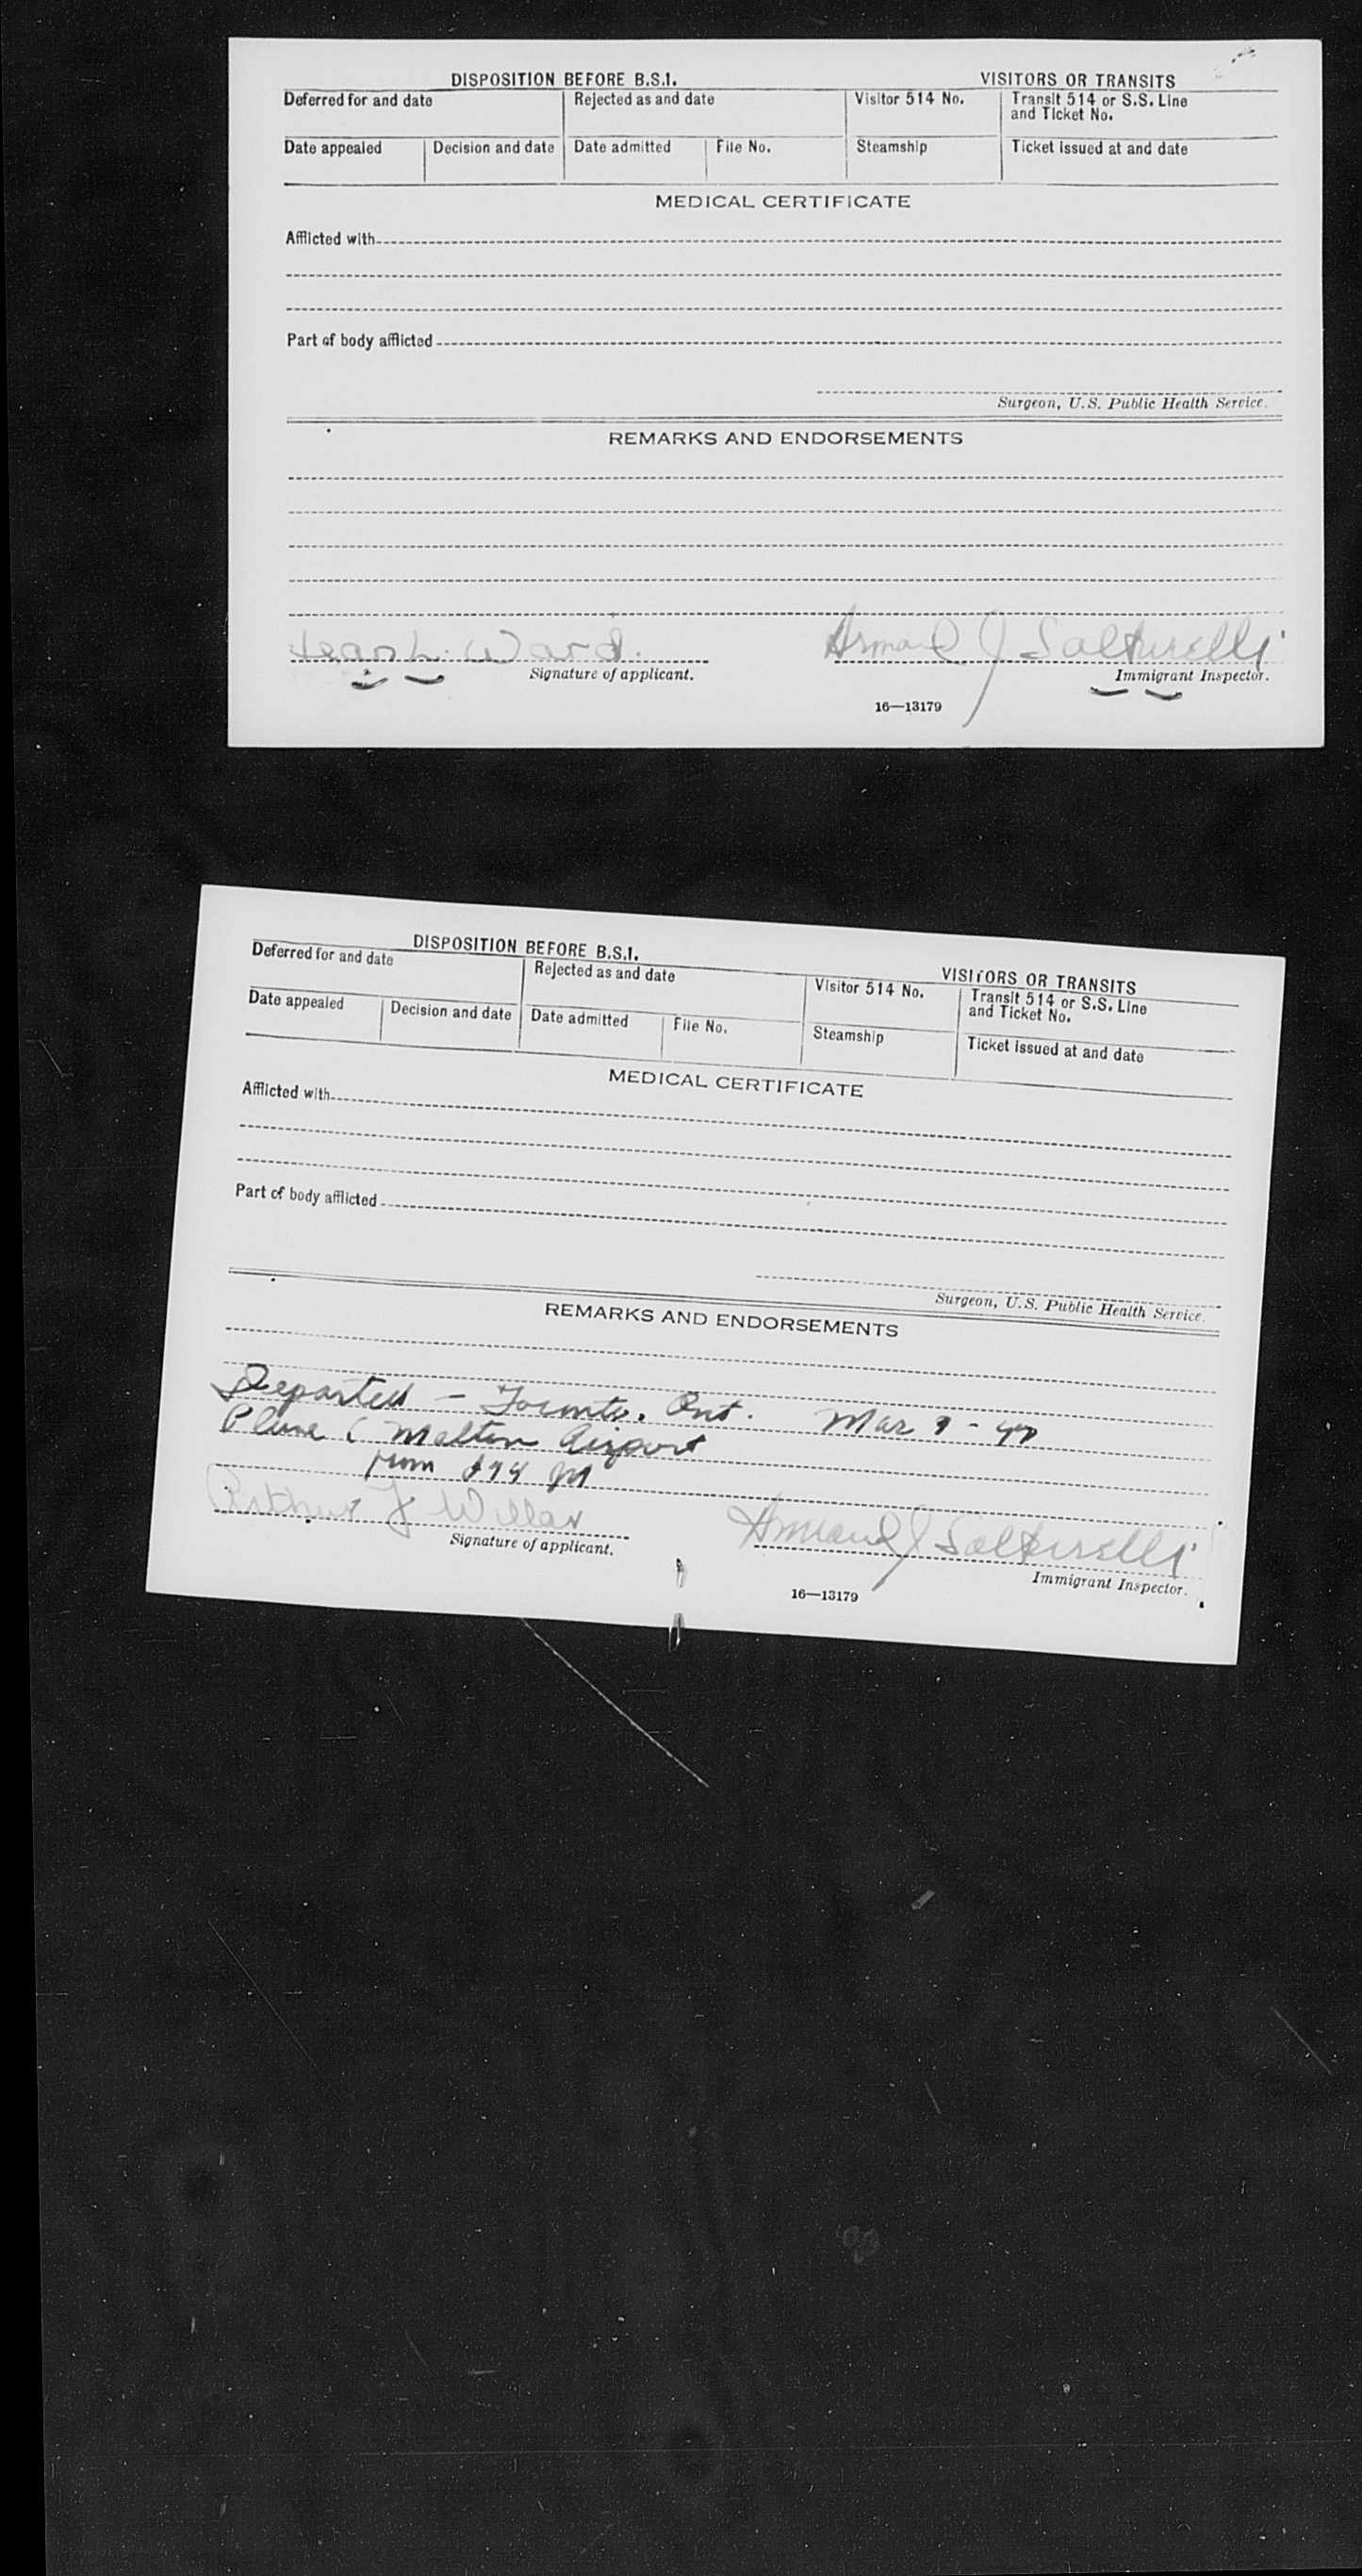 DISPOSITION BEFORE B.S.I. VISITORS OR TRANSITS
Deferred for and date Rejected as and date Visitor 514 No. Transit 514 or S.S. Line
and Ticket No.
Date appealed Decision and date Date admitted File No. Steamship Ticket issued at and date
MEDICAL CERTIFICATE
Afflicted with
Part of body afflicted
Surgeon, U.S. Public Health Service.
REMARKS AND ENDORSEMENTS
L. Ward. Armand J Salturelli
Signature of applicant. Immigrant Inspector.
16—13179
DISPOSITION BEFORE B.S.I. VISITORS OR TRANSITS
Deferred for and date Rejected as and date Visitor 514 No. Transit 514 or S.S. Line
and Ticket No.
Date appealed Decision and date Date admitted File No. Steamship Ticket issued at and date
MEDICAL CERTIFICATE
Afflicted with
Part of body afflicted
Surgeon, U.S. Public Health Service.
REMARKS AND ENDORSEMENTS
Departed - Toronto. Ont. Mar
Plane Malton Airport
Arthur J Armand J Salturelli
Signature of applicant. Immigrant Inspector.
16—13179